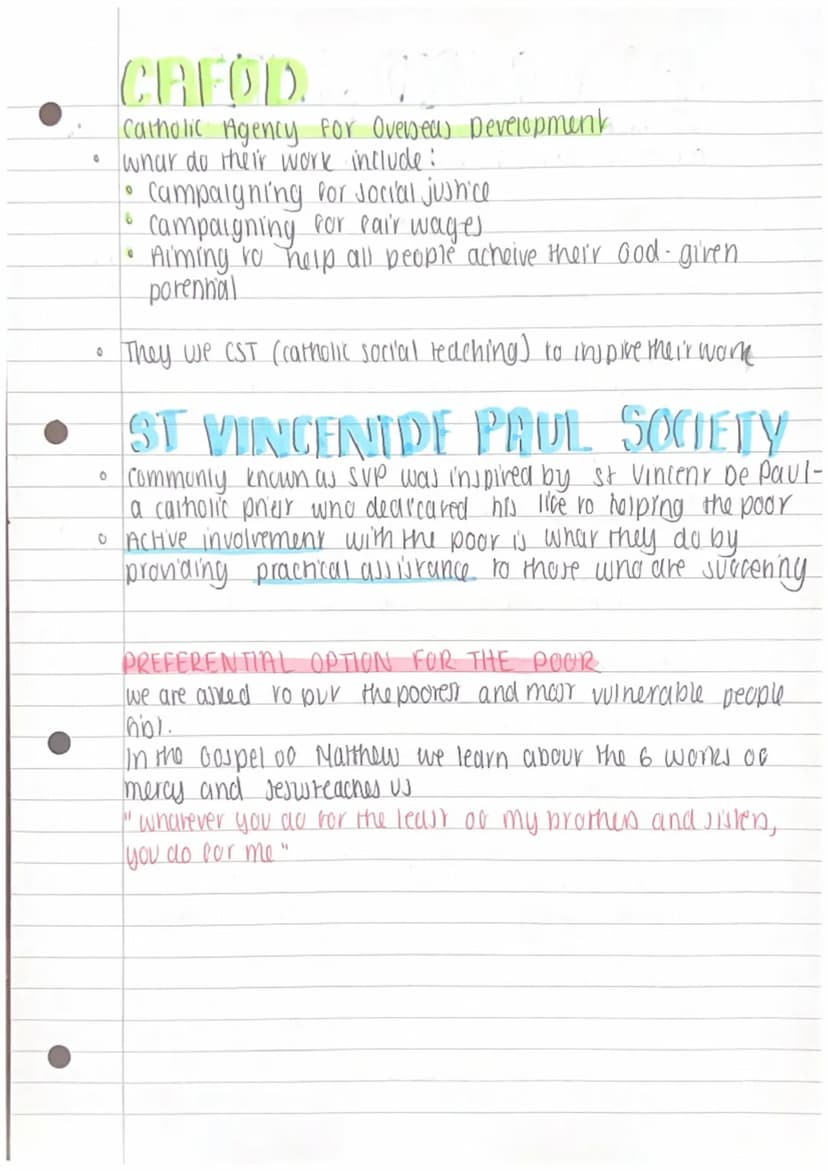 CAFOD
Catholic Agency For Overseas Development
What do their work include:
Campaigning for social justice
Campaigning for fair wages
Aiming to help all people acheive their God-given
potential
They use CST (catholic social teaching) to inspire their work
ST VINCENT DE PAUL SOCIETY
Commonly known as SVP was inspired by St Vincent De Paul-
a catholic priest who dedicated his life to helping the poor
Active involvement with the poor is what they do by
providing practical assistance to those who are suffering
PREFERENTIAL OPTION FOR THE POOR
We are asked to put the poorest and most vulnerable people
first.
In the Gospel of Matthew we learn about the 6 works of
mercy and Jesus teaches us
"Whatever you do for the least of my brothers and sisters,
you do for me"